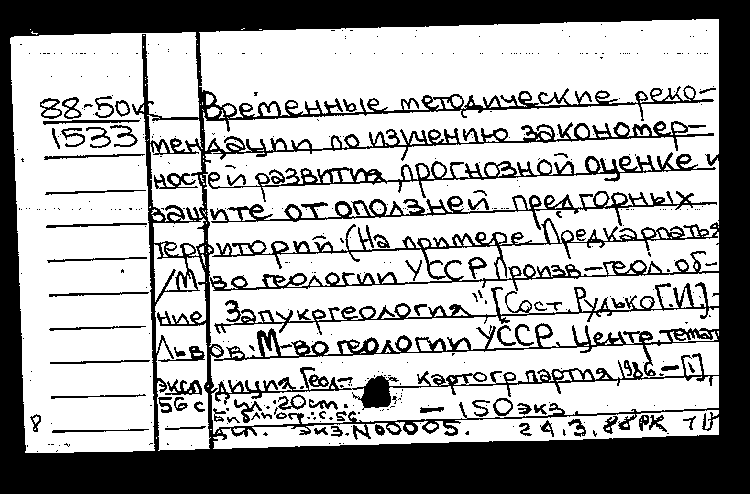 88-50к Временные методические реко-
1533 мендации по изучению закономер-
ностей развития, прогнозной оценке и
защите от оползней предгорных
территорий: (На примере Предкарпатья
/М-во геологии УССР, Произв.-геол. об-
ние "Запукргеология", [Сост. Рудько Г.И.].-
Львов: М-во геологии УССР. Центр. темат
экспедиция. Геол.- картогр. партия, 1986. - [1],
56 с. : ил.: 20 см. - 150 экз.
Библиогр.: с. 56
8 дсп. экз. N00005. 24.3.88 РК